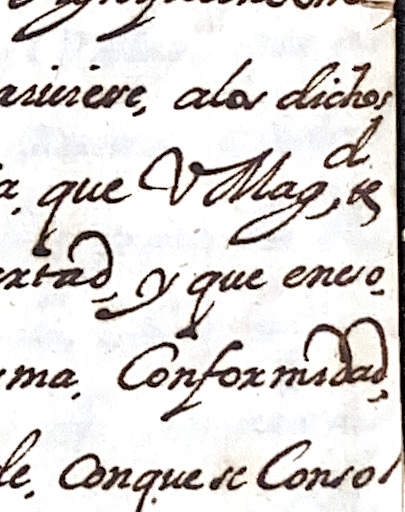 alos dichos
a, que V Mag.d, 
ertad, y que eneso
ma, Conformidad,
le, Conque se Consol